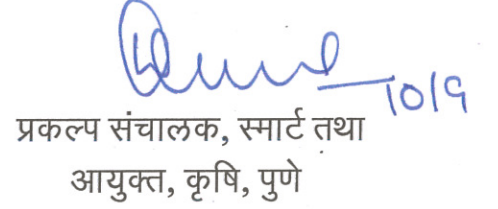 10/9
प्रकल्प संचालक, स्मार्ट तथा
आयुक्त, कृषि, पुणे